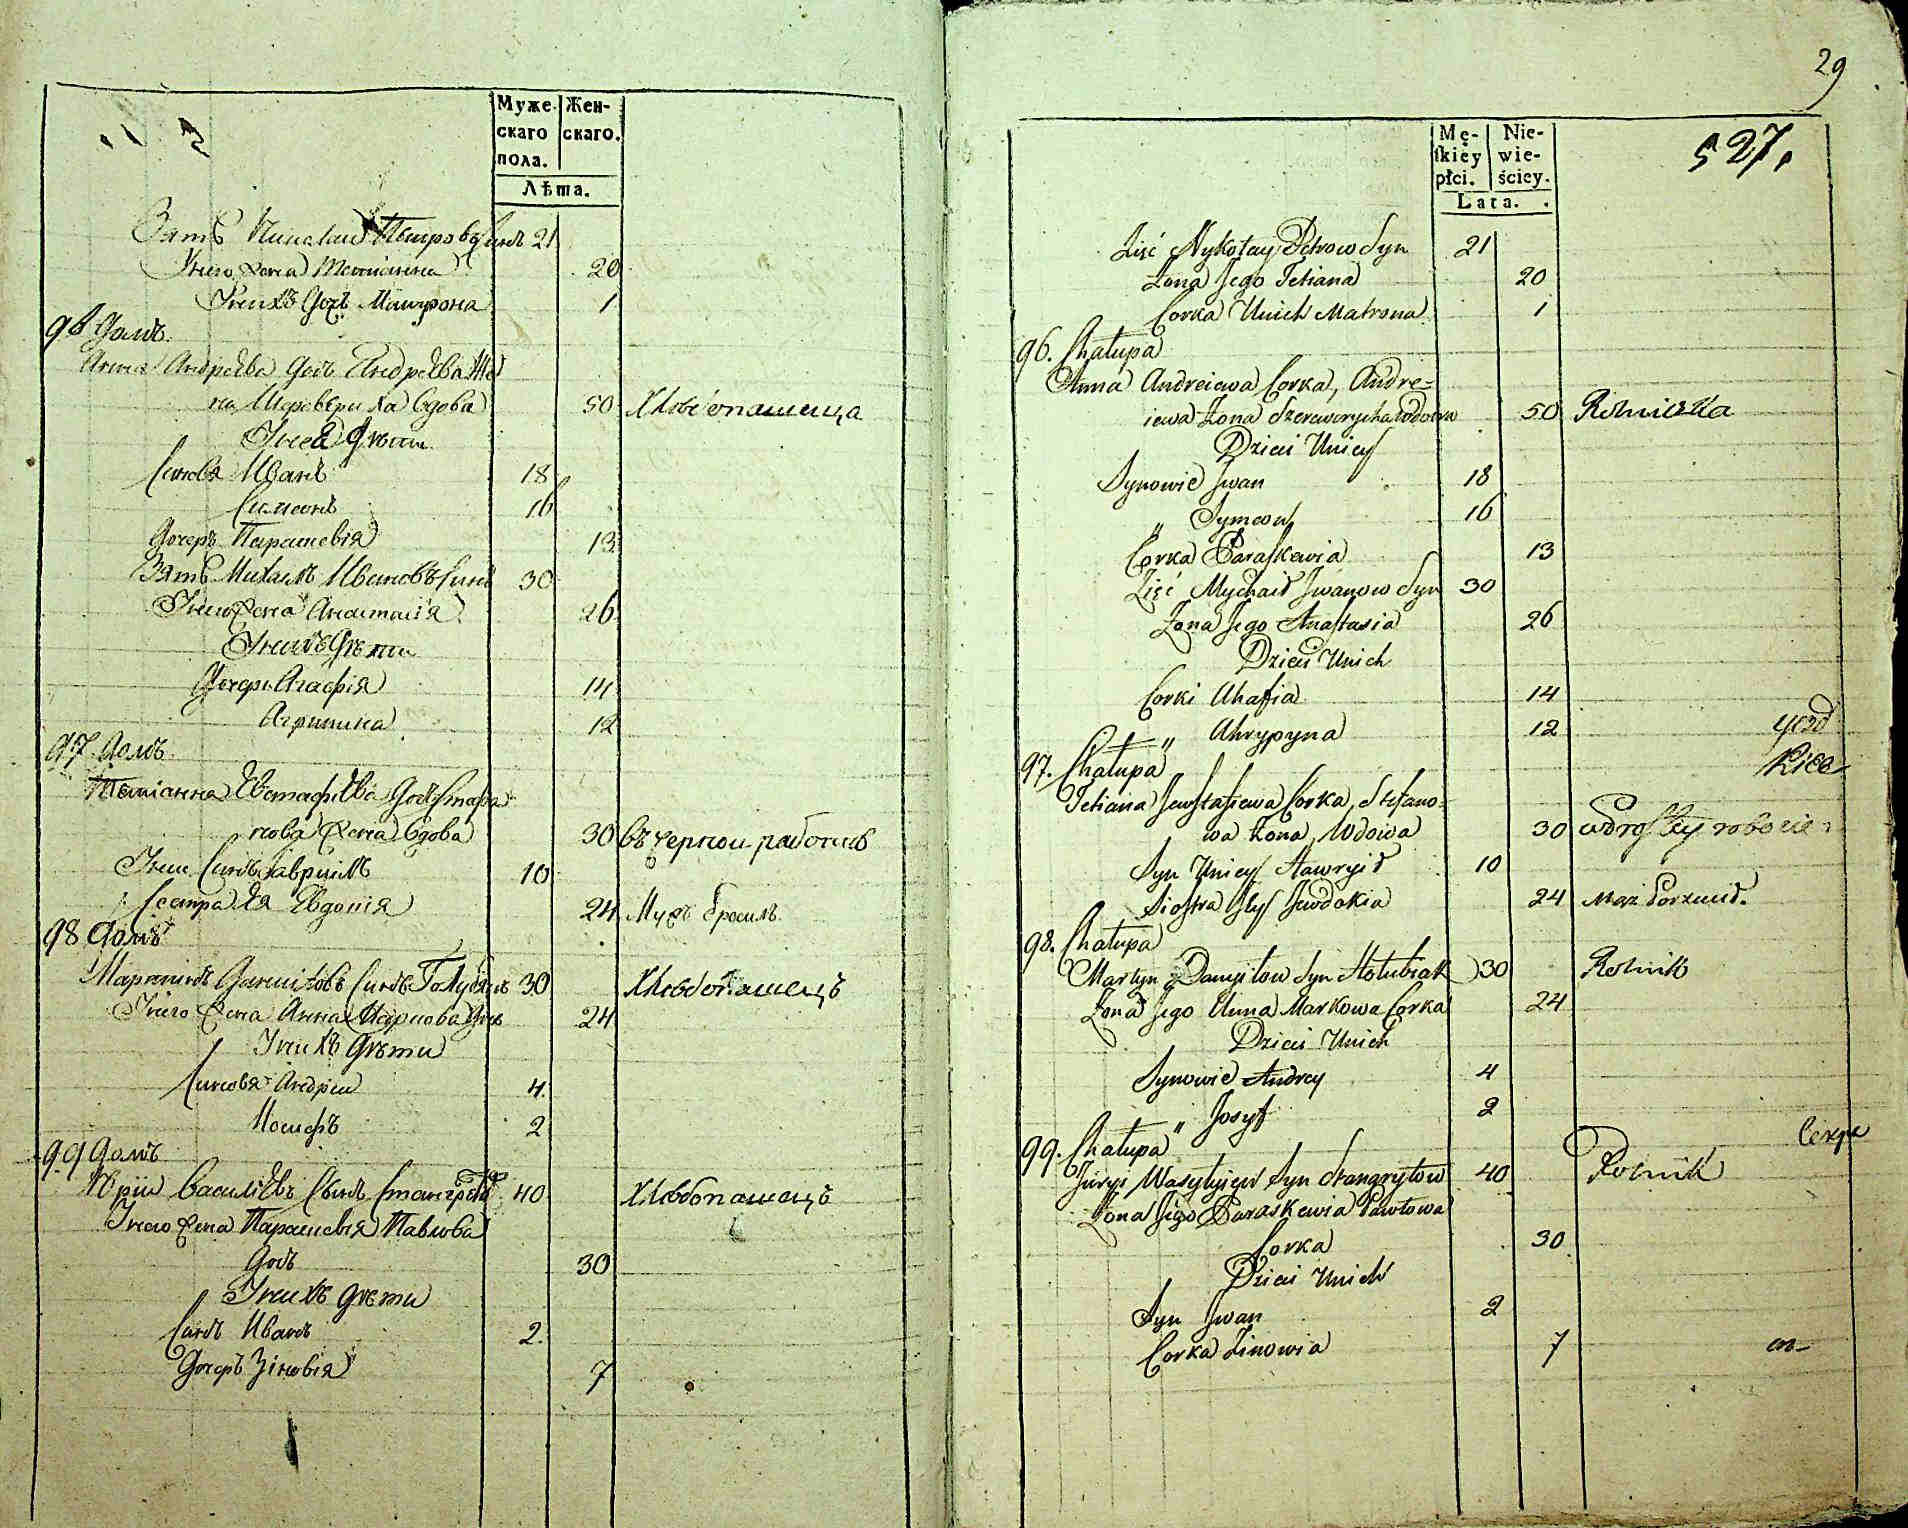 Муже- Жен-
скаго скаго.
пола.
Лѣта.
Зять Николай Петровъ Синъ 21
Унего Жена Татіанна 20
Унихъ Доч Матрона 1
96 Домъ
Анна Андрѣева Дочь Андрѣева Же
на Шереверыха вдова 50 Хлебопашица
Унея Дѣти
Синовя Иванъ 18
Симеонъ 16
Дочерь Параскевія 13
Зять Михаилъ Ивановъ Синъ 30
Унего Жена Анастасія 26
Унихъ Дѣти
Дочери Агафія 14
Агрипина 12
97 Домъ
Татіанна Евстафіева Доч Стефа
нова Жена Вдова 30 въ черной работѣ
Унеи Синъ Гавриилъ 10
Сестра Ея Евдокія 24 Мужъ бросилъ
98 Домъ
Мартинъ Даниловъ Синъ Голубякъ 30 Хлебопашецъ
Унего Жена Анна Маркова Дочь 24
Унихъ Дѣти
Синовя Андрій 4
Иосифъ 2
99 Домъ
Юрій Василіевъ Синъ 40 Хлебопашецъ
Унего Жена Параскевія Павлова
Дочь 30
Унихъ Дѣти
Синъ Иванъ 2
Дочерь Зіновія 7
29
527.
Mę- Nie-
skiey wie-
płci. ściey.
Lata.
Zięć Nykołay Petrow Syn 21
Żona Jego Tetiana 20
Corka Unich Matrona 1
96. Chałupa
Anna Andreiewa Corka, Andre=
iewa Żona Szerewerycha Wdowa 50 Rolniczka
Dzieci Uniey
Synowie Jwan 18
" Symeon 16
Corka Paraskewia 13
Zięć Mychaił Jwanow Syn 30
Żona Jego Anastasia 26
Dzieci Unich
Corki Ahafia 14
" Ahrypyna 12
97. Chałupa
Tetiana Jewstafiewa Corka, Stefano=
wa Żona, Wdowa 30 w prostey robocie
Syn Uniey Hawryił 10
Siostra Jey Jewdokia 24 Mąż Porzucił.
98. Chałupa
Martyn Danyłow Syn Hołubiak 30 Rolnik
Żona Jego Anna Markowa Corka 24
Dzieci Unich
Synowie Andrey 4
" Josyf 2
99. Chałupa
Juryi Wasylyiew Syn Stangrytow 40 Rolnik
Żona Jego Paraskewia Pawłowa
Corka 30
Dzieci Unich
Syn Jwan 2
Corka Zinowia 7